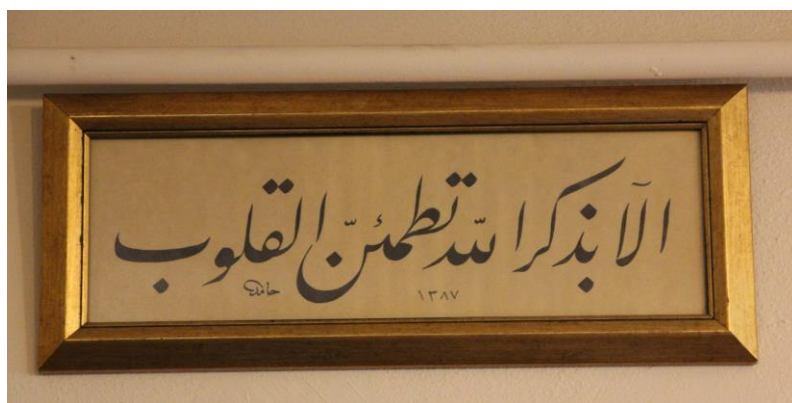 الآ بذكر الله تطمئنّ القلوب
١٣٨٧
حامد